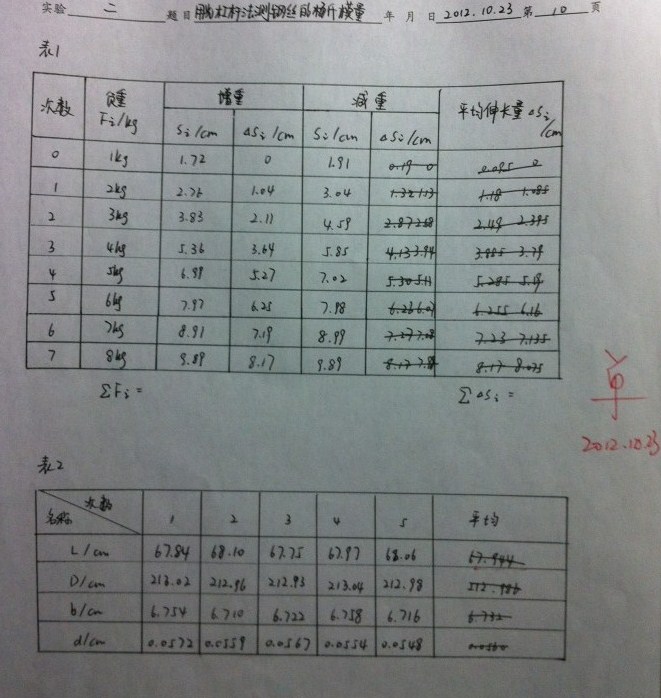 实验 二 题目 用光杠杆法测钢丝的杨氏模量 年 月 日 2012.10.23 第 10 页
表1
次数 负重 Fi/kg 增重 减重 平均伸长量 ΔSi/cm
Si/cm ΔSi/cm Si/cm ΔSi/cm
0 1kg 1.72 0 1.91 0.19 0 0.095 0
1 2kg 2.76 1.04 3.04 1.32 1.13 1.18 1.085
2 3kg 3.83 2.11 4.59 2.87 2.68 2.49 2.395
3 4kg 5.36 3.64 5.85 4.13 3.94 3.885 3.79
4 5kg 6.99 5.27 7.02 5.30 5.11 5.285 5.19
5 6kg 7.97 6.25 7.98 6.26 6.07 6.255 6.16
6 7kg 8.91 7.19 8.99 7.27 7.08 7.23 7.135
7 8kg 9.89 8.17 9.89 8.17 7.98 8.17 8.075
ΣFi = ΣΔSi =
2012.10.23
表2
次数
名称 1 2 3 4 5 平均
L/cm 67.84 68.10 67.75 67.97 68.06 67.944
D/cm 213.02 212.96 212.93 213.04 212.98 212.986
b/cm 6.754 6.710 6.722 6.758 6.716 6.732
d/cm 0.0572 0.0559 0.0567 0.0554 0.0548 0.0560